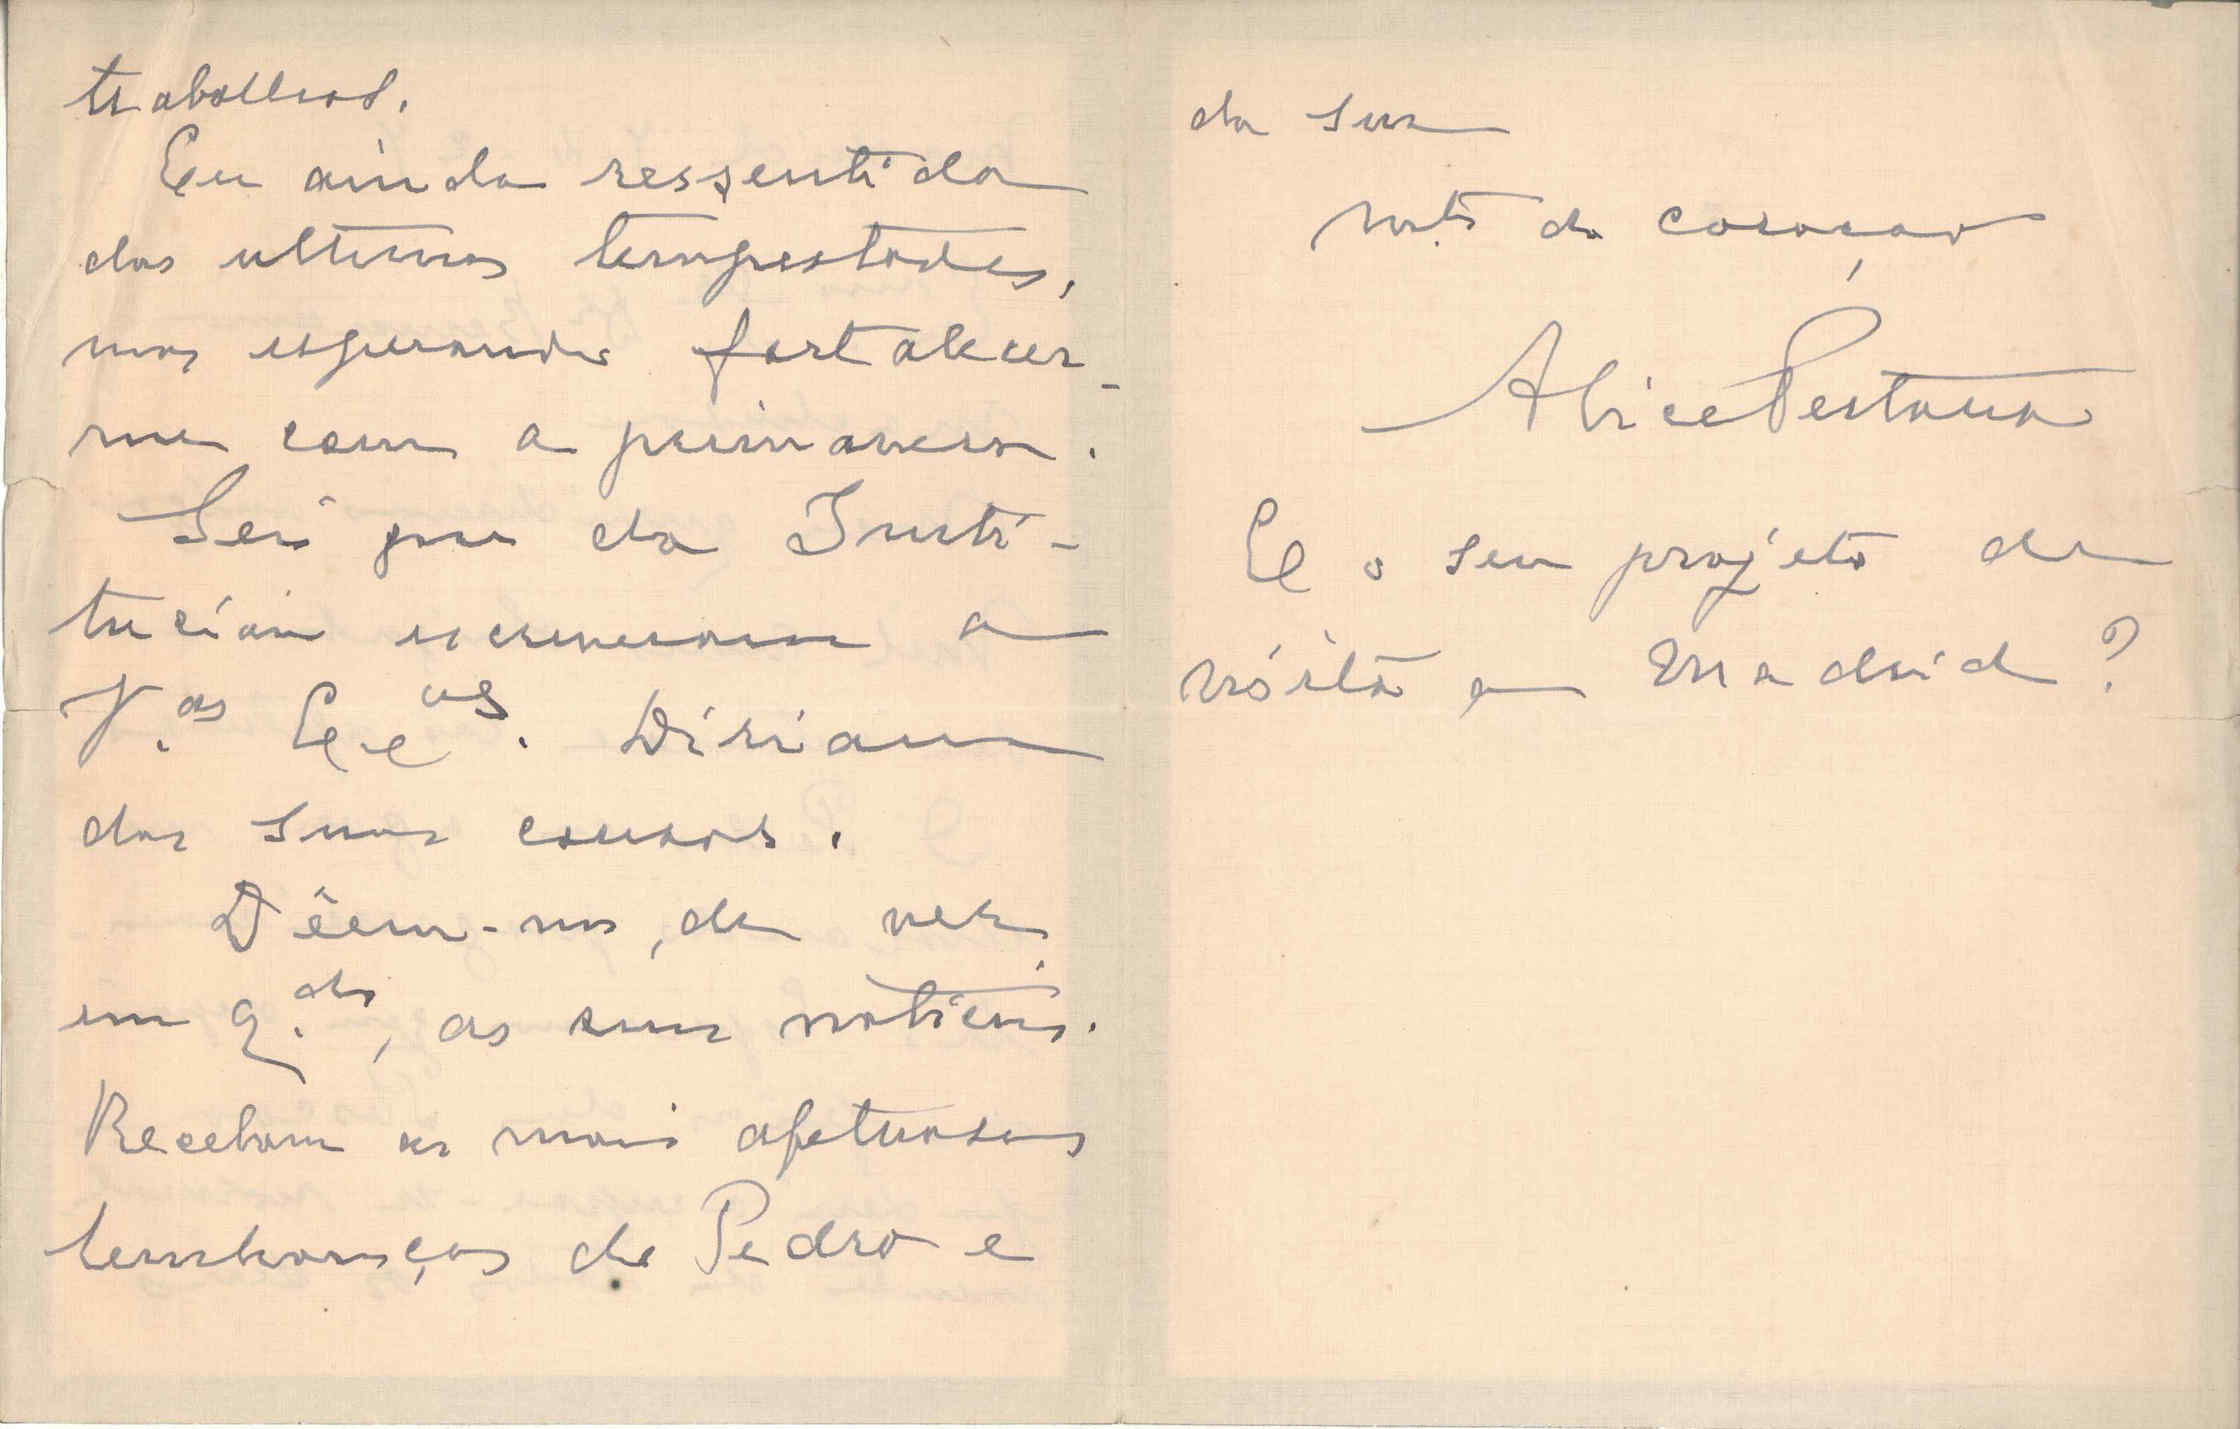 trabalhos.
Eu ainda ressentida
das ultimas tempestades,
mas esperando fortalecer-
me com a primavera.
Sei que da Insti-
tución escreveram a
V.as Ex.as. Diziam
das suas cousas.
Dêem-nos, de vez
em q.do, as suas noticias.
Recebam as mais afetuosas
lembranças de Pedro e
da sua
m.to do coração
Alice Pestana
E o seu projeto de
visita a Madrid?